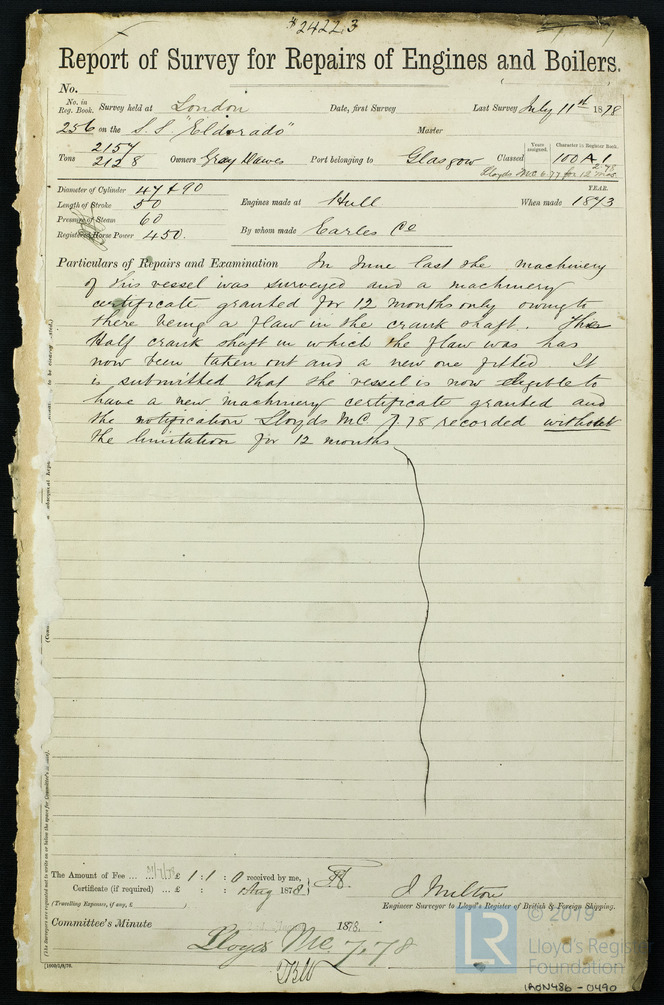 *24223
Report of Survey for Repairs of Engines and Boilers.
No.
No. in Reg. Book. Survey held at London Date, first Survey Last Survey July 11th 1878
256 on the S.S. "Eldorado" Master
Tons 2157 2128 Owners Gray Dawes Port belonging to Glasgow Classed Years assigned. Character in Register Book. 100 A 1 2.78
Lloyds MC 6.77 for 12 mos
Diameter of Cylinder 47 & 90
Length of Stroke 50
Pressure of Steam 60
Registered Horse Power 450.
Engines made at Hull YEAR. When made 1873
By whom made Earles Co
Particulars of Repairs and Examination In June last the machinery
of this vessel was surveyed and a machinery
certificate granted for 12 months only owing to
there being a flaw in the crank shaft. The
Half crank shaft in which the flaw was has
now been taken out and a new one fitted It
is submitted that the vessel is now eligible to
have a new machinery certificate granted and
the notification Lloyds MC 7.78 recorded without
the limitation for 12 months
The Amount of Fee ... £ 1 : 1 : 0 received by me,
Certificate (if required) ... £ : : Aug 1878.
(Travelling Expenses, if any, £ ).
J Milton
Engineer Surveyor to Lloyd's Register of British & Foreign Shipping.
Committee's Minute 1878.
Lloyds MC. 7.78
(The Surveyors are requested not to write on or below the space for Committee's Minute).
LR
© 2019
Lloyd's Register
Foundation
IRON486-0490